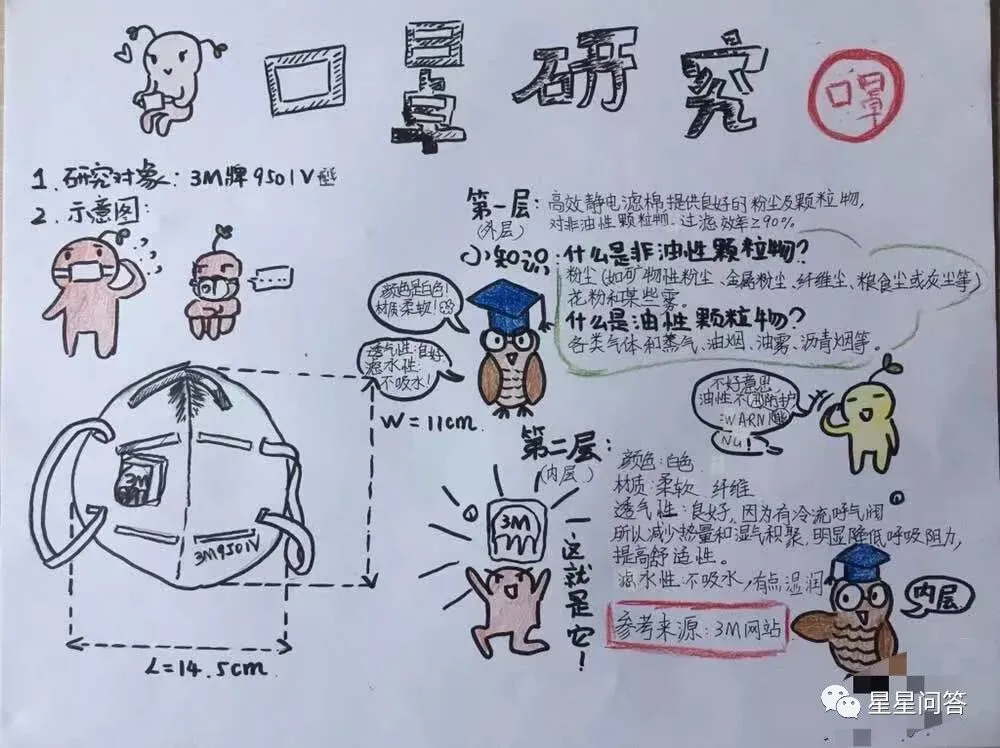 口罩研究
口罩
1. 研究对象：3M牌9501V型
2. 示意图：
第一层：高效静电滤棉提供良好的粉尘及颗粒物，
(外层) 对非油性颗粒物.过滤效率≥90%
小知识：什么是非油性颗粒物?
粉尘(如矿物性粉尘、金属粉尘、纤维尘、粮食尘或灰尘等)
花粉和某些雾。
什么是油性颗粒物?
各类气体和蒸气、油烟、油雾、沥青烟等。
颜色是白色!
材质柔软!
透气性:良好
滤水性:
不吸水!
W=11cm
3M
3M9501V
L=14.5cm
不好意思,
油性不
第二层：
(内层)
颜色:白色
材质:柔软 纤维
透气性:良好,因为有冷流呼气阀
所以减少热量和湿气积聚,明显降低呼吸阻力,
提高舒适性。
滤水性:不吸水,有点湿润
3M
—这就是它!
内层
参考来源:3M网站
星星问答